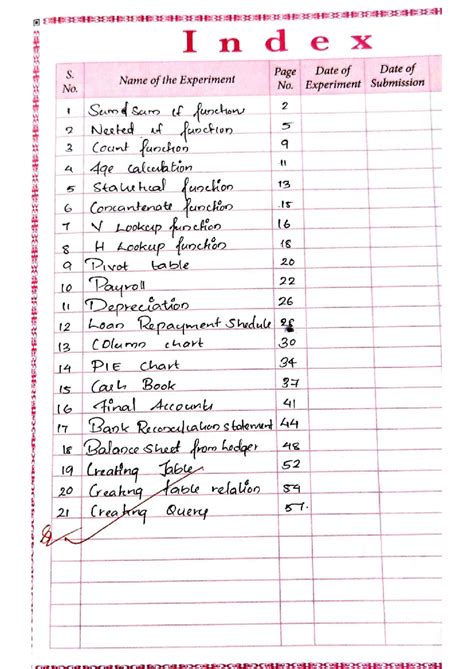 Index
S. No. Name of the Experiment Page No. Date of Experiment Date of Submission
1 Sum & Sum if function 2
2 Nested if function 5
3 Count function 9
4 Age calculation 11
5 Statistical function 13
6 Concantenate function 15
7 V Lookup function 16
8 H Lookup function 18
9 Pivot table 20
10 Payroll 22
11 Depreciation 26
12 Loan Repayment Shedule 28
13 COlumn chart 30
14 PIE chart 34
15 Cash Book 37
16 Final Accounts 41
17 Bank Reconciliation statement 44
18 Balance Sheet from ledger 48
19 Creating Table 52
20 Creating table relation 54
21 Creating Query 57.